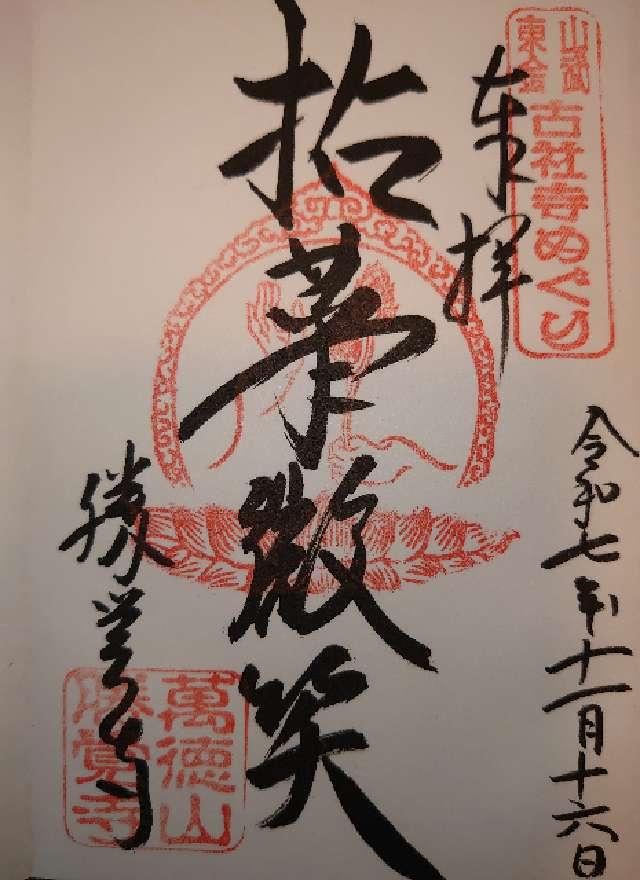 山武
東金
古社寺めぐり
奉拝
令和七年十一月十六日
拈華微笑
勝覚寺
萬徳山
勝覚寺